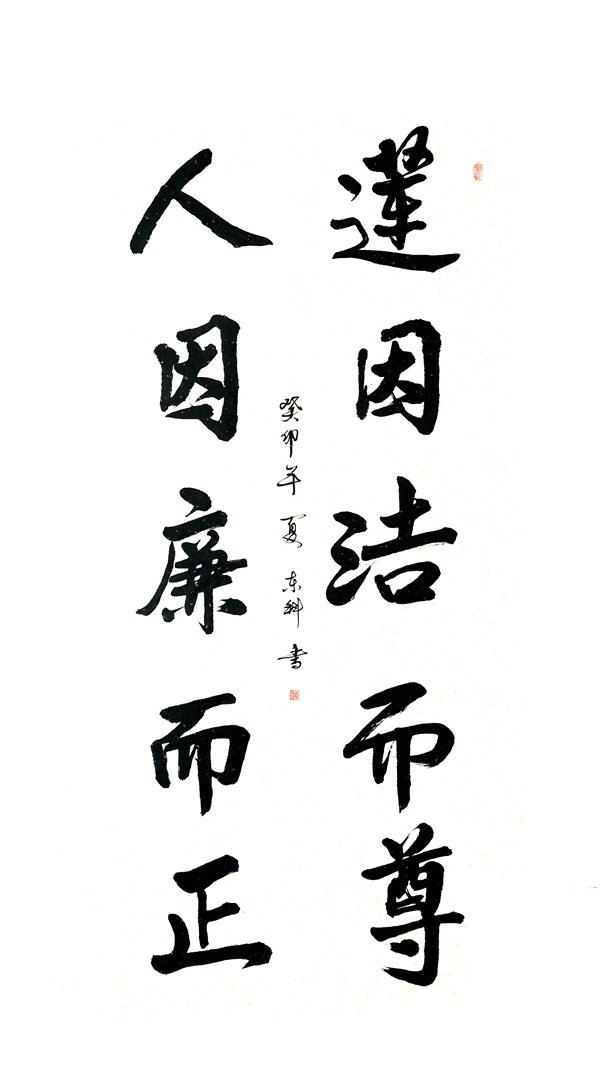 蓮因洁而尊
人因廉而正
癸卯年夏东科书